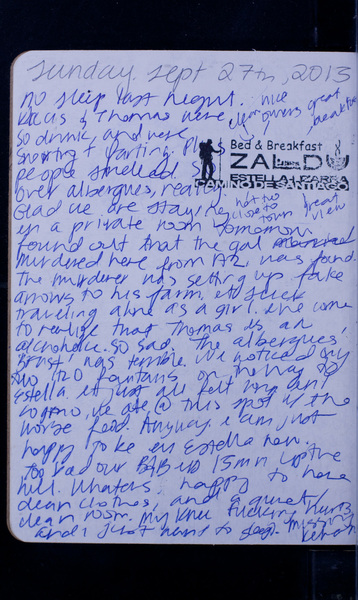 Sunday. Sept 27th, 2013
no sleep last night.
nice
clean
owners great
breakfast
& Thomas were
so drunk, and were
snoring & farting. Plus
people smelled.
Bed & Breakfast
ZALDU
ESTELLA-LIZARRA
CAMINO DE SANTIAGO
over albergues, really.
Glad we are staying
not too
close to
town
great
view
in a private room tomorrow.
found out that the gal
murdered here from AZ was found.
The murderer was setting up fake
arrows to his farm.
traveling alone as a girl. I've come
to realize that Thomas is an
alcoholic. so sad. The albergues,
was terrible. We noticed only
two H2O fountains on the way to
Estella. it just all felt
we ate @ this spot w/ the
worse food. Anyway. i am just
happy to be in Estella now.
too bad our B&B was 15 mn up the
hill. Whatever. happy to have
clean clothes, and a quiet/
clean room. My knee fucking hurts
and i just want to sleep. missing